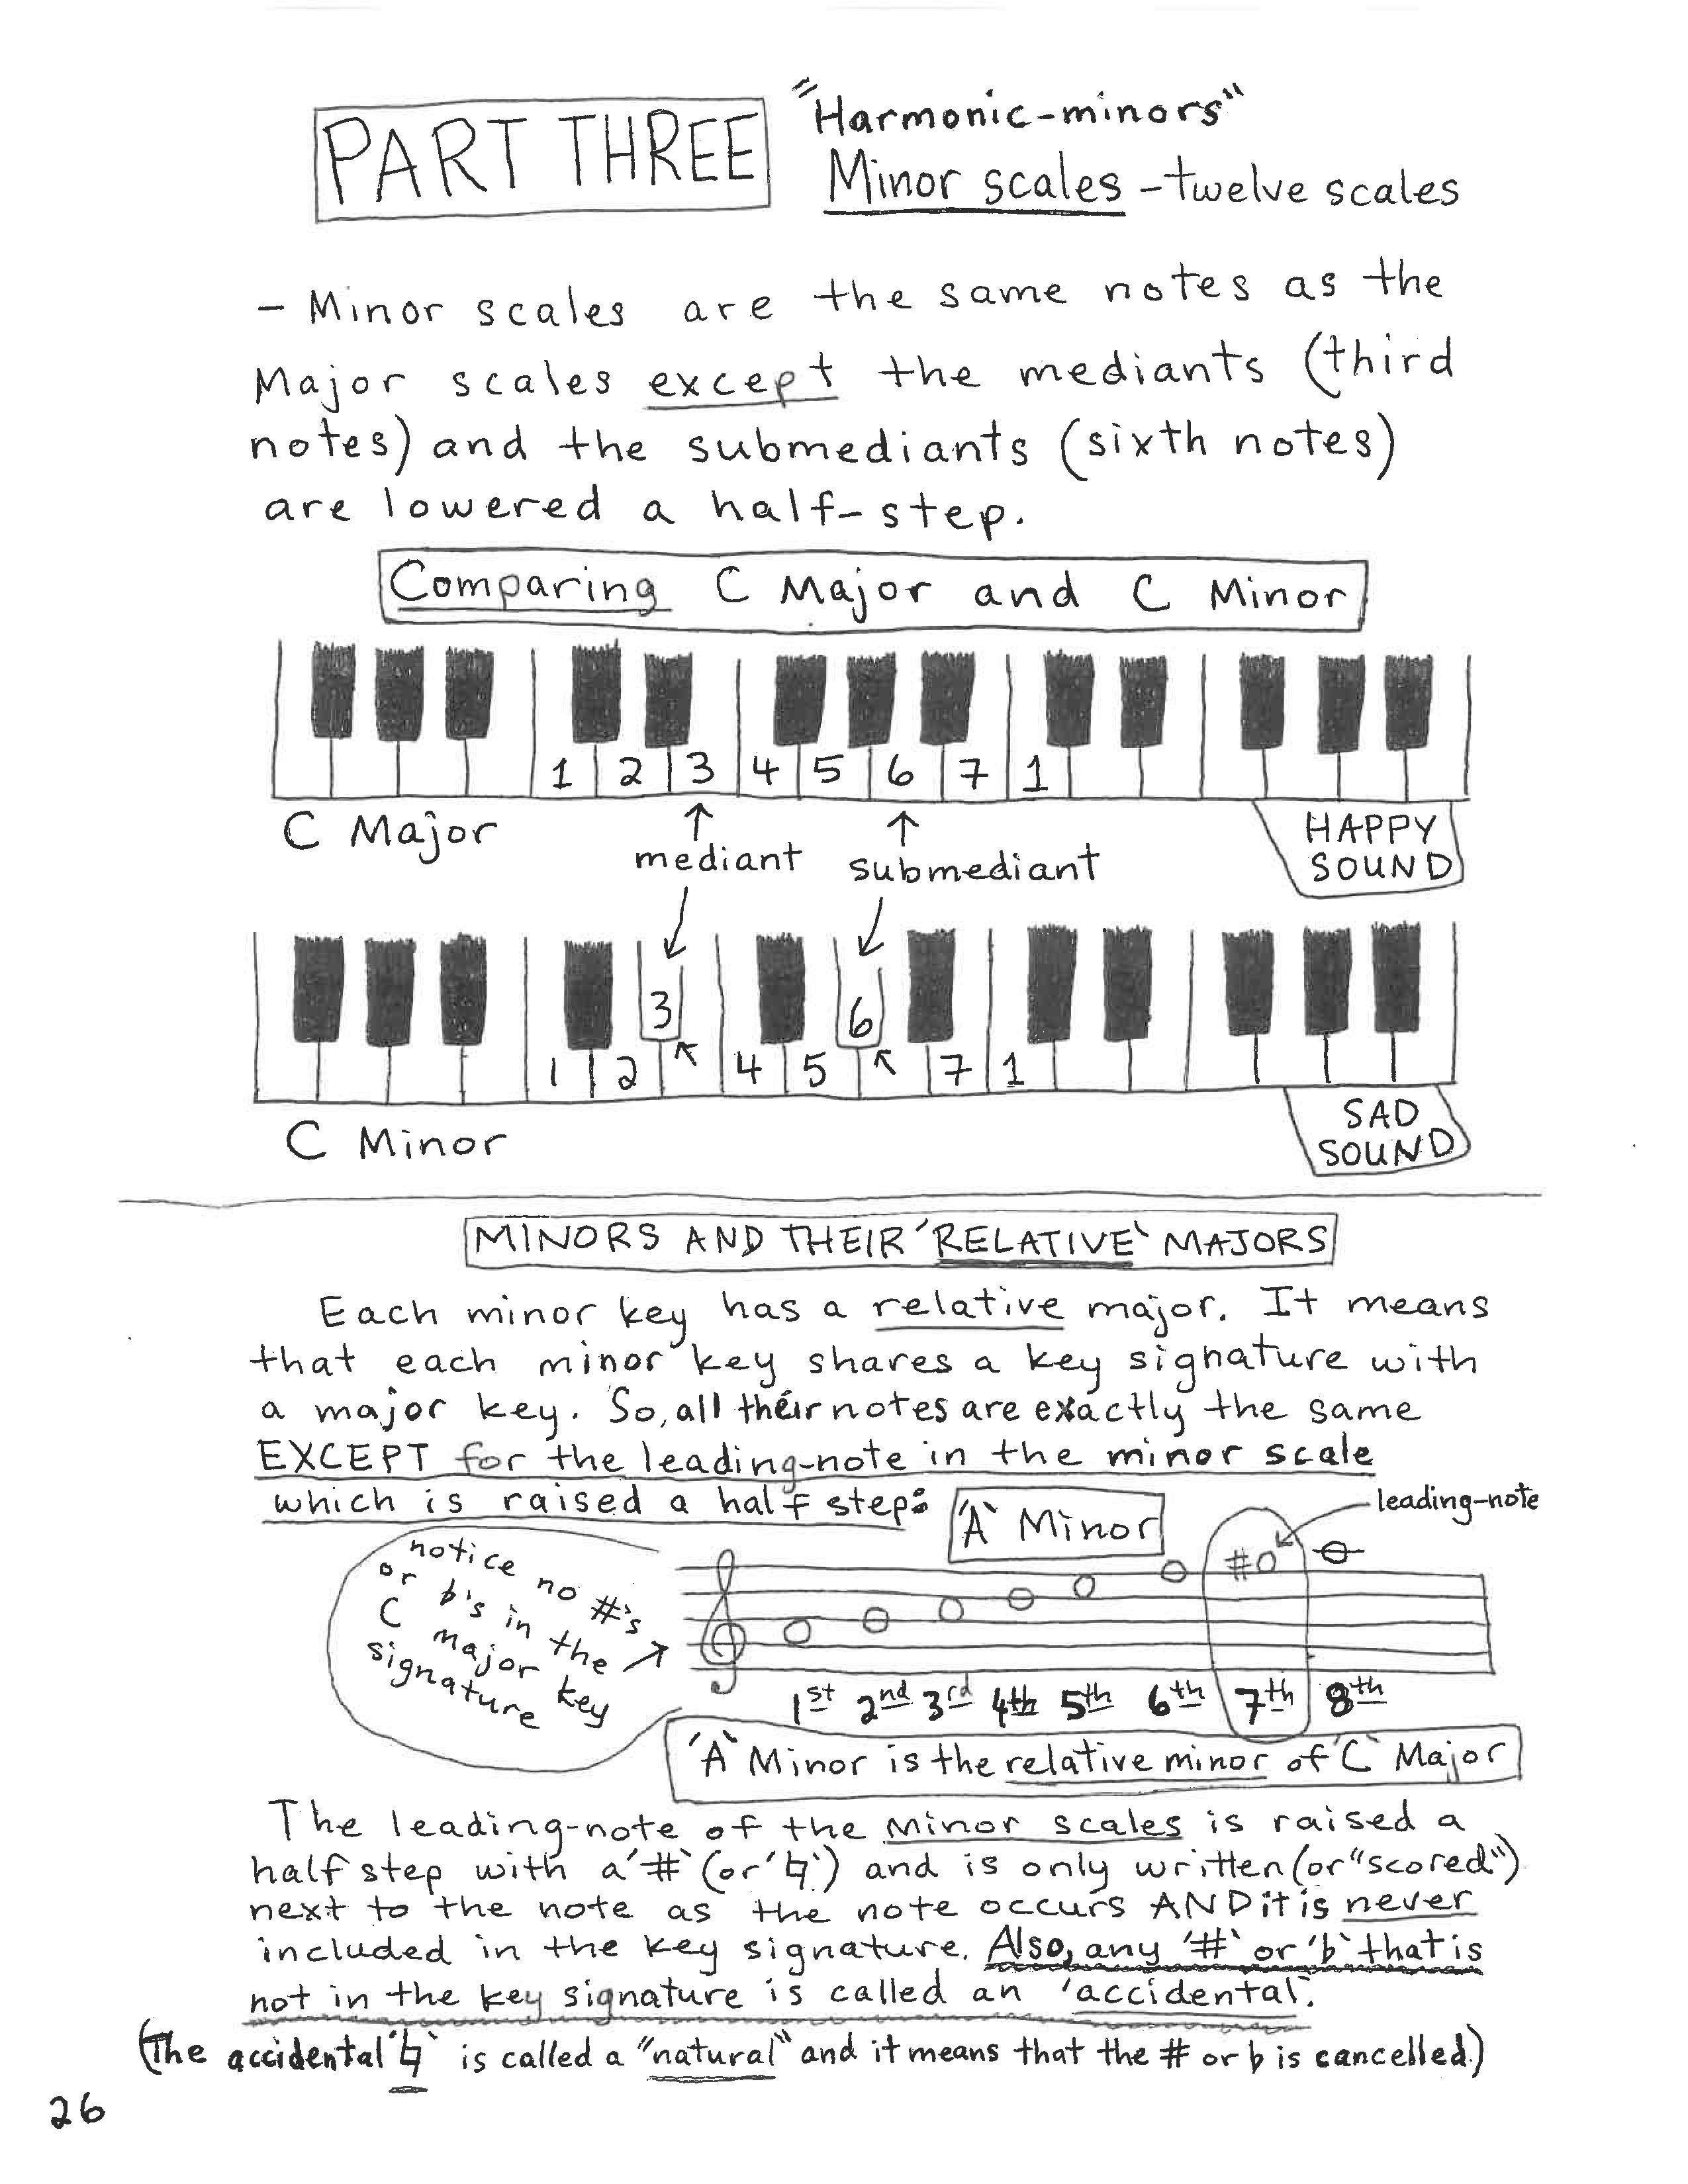 PART THREE
"Harmonic-minors"
Minor scales - twelve scales
- Minor scales are the same notes as the
Major scales except the mediants (third
notes) and the submediants (sixth notes)
are lowered a half-step.
Comparing C Major and C Minor
1 2 3 4 5 6 7 1
C Major
mediant
submediant
HAPPY
SOUND
3 6
1 2 4 5 7 1
C Minor
SAD
SOUND
MINORS AND THEIR 'RELATIVE' MAJORS
Each minor key has a relative major. It means
that each minor key shares a key signature with
a major key. So, all their notes are exactly the same
EXCEPT for the leading-note in the minor scale
which is raised a half step:
'A' Minor
leading-note
notice no #'s
or b's in the
C major key
signature
#
1st 2nd 3rd 4th 5th 6th 7th 8th
'A' Minor is the relative minor of 'C' Major
The leading-note of the minor scales is raised a
half step with a '#' (or '♮') and is only written (or "scored")
next to the note as the note occurs AND it is never
included in the key signature. Also, any '#' or 'b' that is
not in the key signature is called an 'accidental'.
(The accidental '♮' is called a "natural" and it means that the # or b is cancelled.)
26